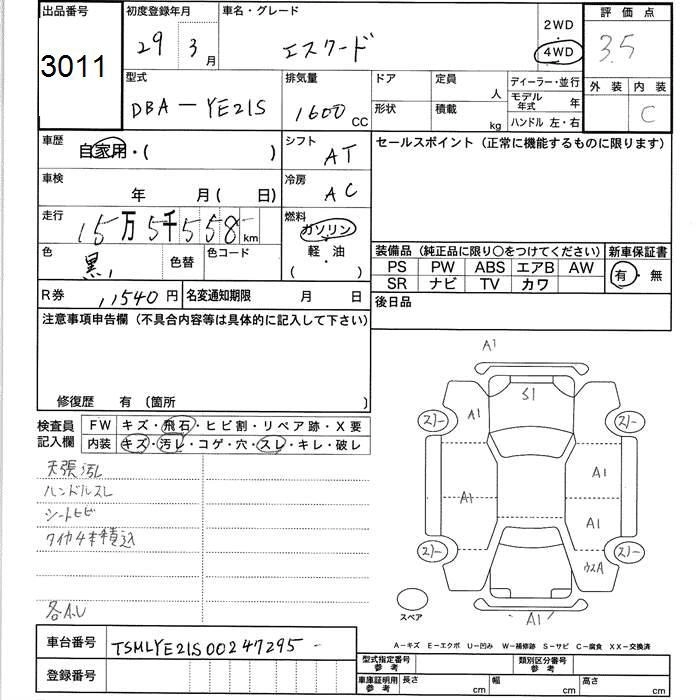 出品番号 初度登録年月 車名・グレード 2WD 評価点
3011 29 3月 エスクード 4WD 3.5
外装 内装
C
型式 排気量 ドア 定員 人 ディーラー・並行
DBA-YE21S 1600 CC モデル年式 年
形状 積載 kg ハンドル 左・右
車歴 自家用・( ) シフト AT セールスポイント(正常に機能するものに限ります)
車検 年 月( 日) 冷房 AC
走行 15万5千558km 燃料 ガソリン・軽油
( )
色 黒 色替 色コード
装備品(純正品に限り○をつけてください) 新車保証書
PS PW ABS エアB AW 有・無
SR ナビ TV カワ
R券 11540円 名変通知期限 月 日 後日品
注意事項申告欄(不具合内容等は具体的に記入して下さい)
修復歴 有(箇所 )
検査員記入欄 FW キズ・飛石・ヒビ割・リペア跡・X要
内装 キズ・汚レ・コゲ・穴・スレ・キレ・破レ
天張汚レ
ハンドルスレ
シートヒビ
タイヤ4本積込
各A.U
A1
S1
A1
スリー スリー
A1
A1
A1
スリー スリー
ウスA
A1
スペア
A-キズ E-エクボ U-凹み W-補修跡 S-サビ C-腐食 XX-交換済
車台番号 TSMLYE21S00247295
登録番号
型式指定番号 参考 類別区分番号 参考
車庫証明用 参考 長さ cm 幅 cm 高さ cm